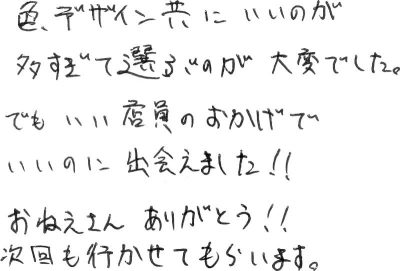 色、デザイン共にいいのが
多すぎて選ぶのが大変でした。
でもいい店員のおかげで
いいのに出会えました!!
おねえさんありがとう!!
次回も行かせてもらいます。